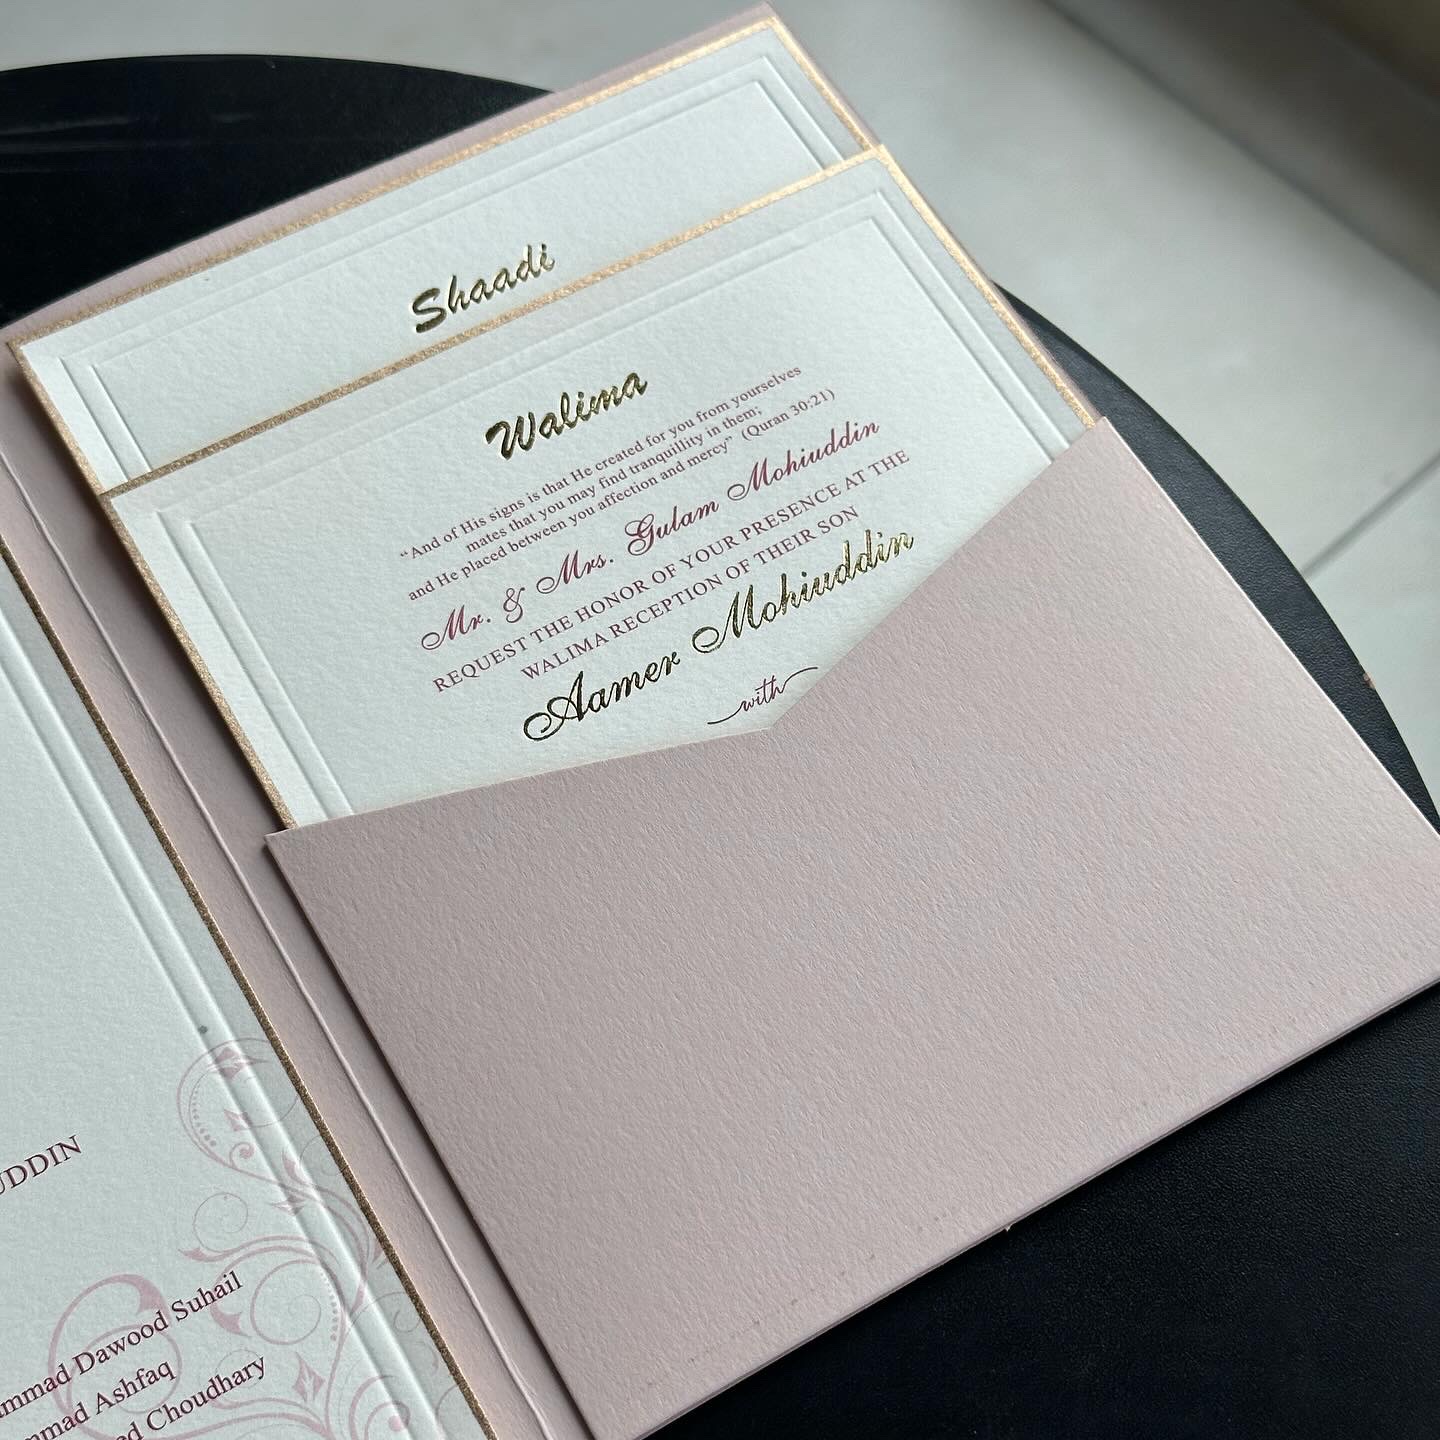 Shaadi
Walima
“And of His signs is that He created for you from yourselves
mates that you may find tranquillity in them;
and He placed between you affection and mercy” (Quran 30:21)
Mr. & Mrs. Gulam Mohiuddin
REQUEST THE HONOR OF YOUR PRESENCE AT THE
WALIMA RECEPTION OF THEIR SON
Aamer Mohiuddin
with
UDDIN
mmad Dawood Suhail
mmad Ashfaq
ed Choudhary